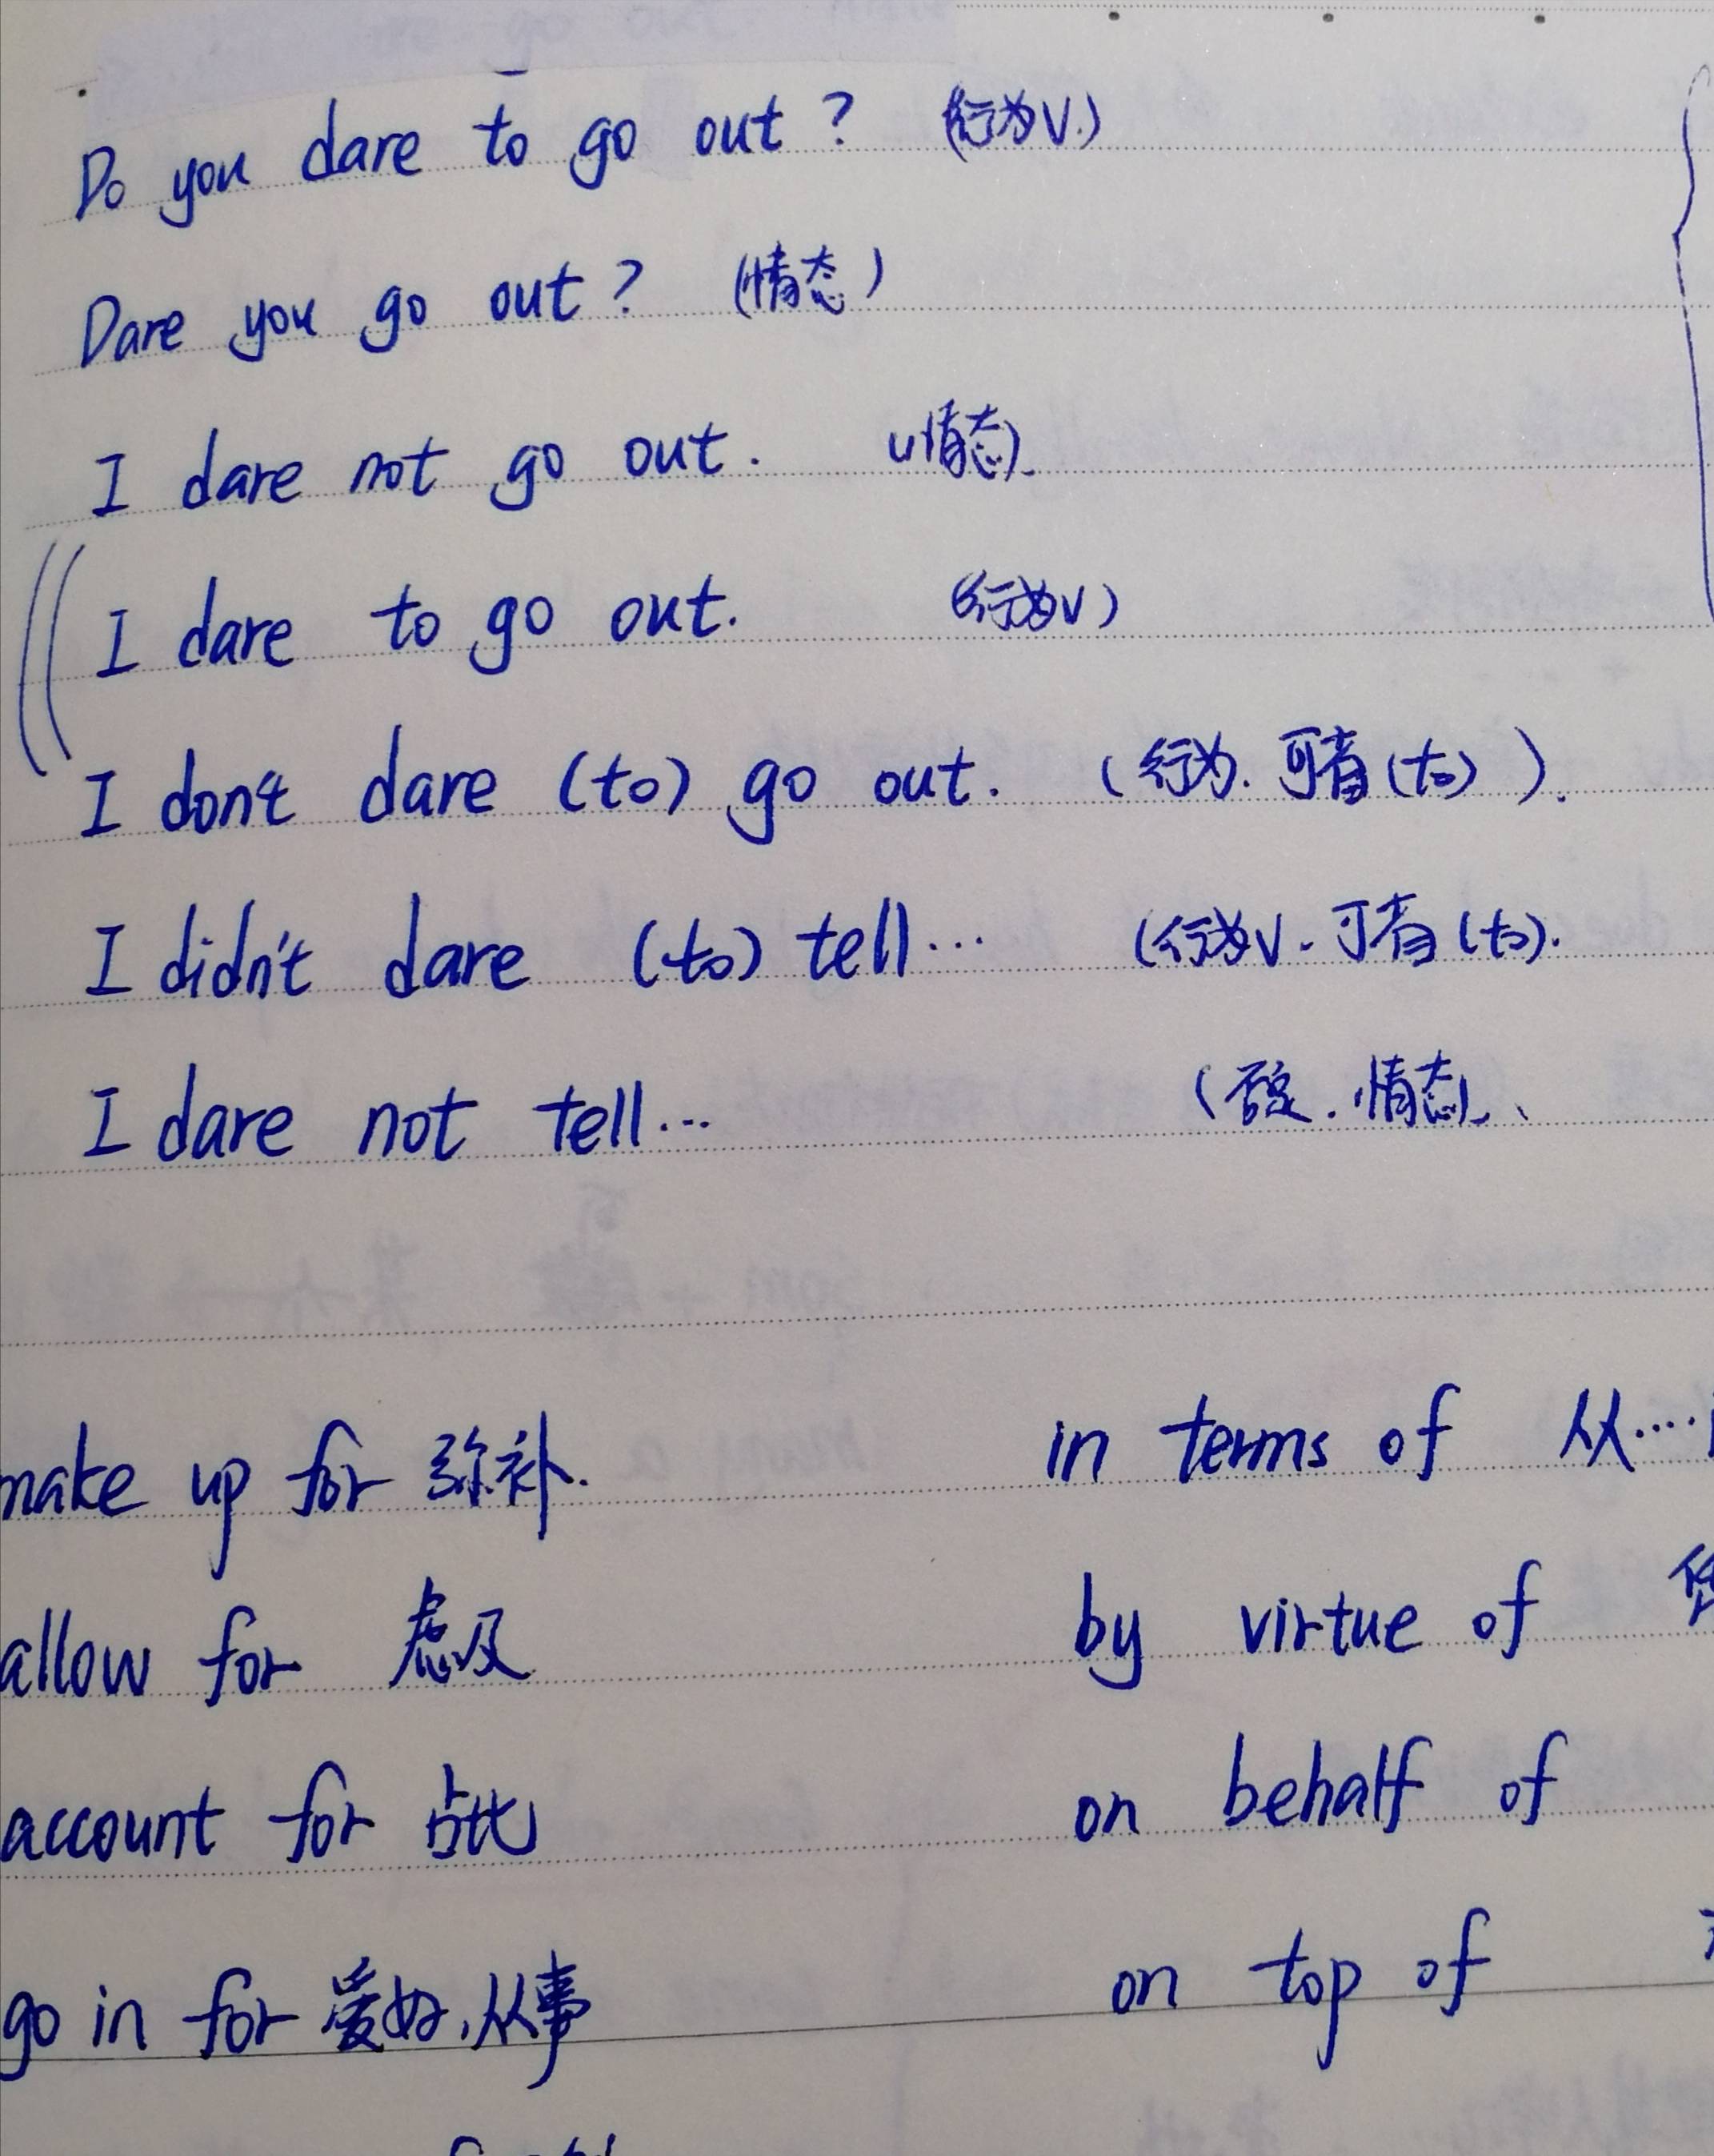 Do you dare to go out ? (行为V.)
Dare you go out ? (情态)
I dare not go out. (情态).
I dare to go out. (行为V)
I don't dare (to) go out. (行为. 可有(to) ).
I didn't dare (to) tell... (行为V. 可有(to).
I dare not tell... (否定. 情态).
make up for 弥补. in terms of 从....
allow for 虑及 by virtue of
account for 占比 on behalf of
go in for 爱好,从事 on top of